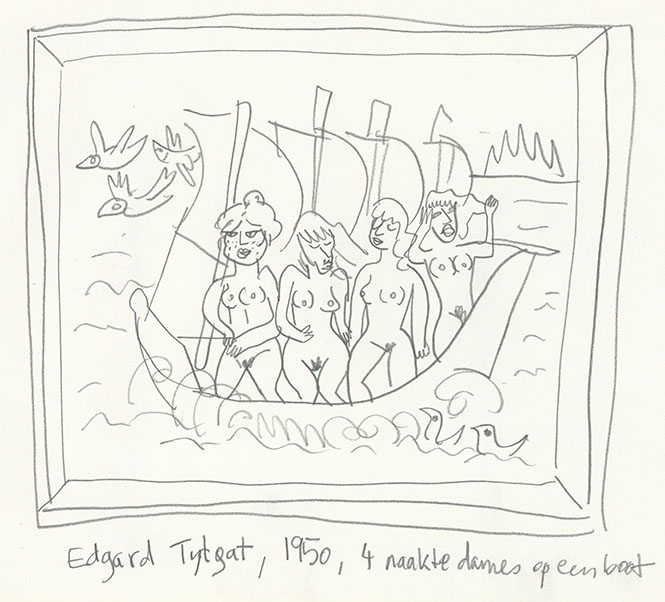 Edgard Tytgat, 1950, 4 naakte dames op een boot